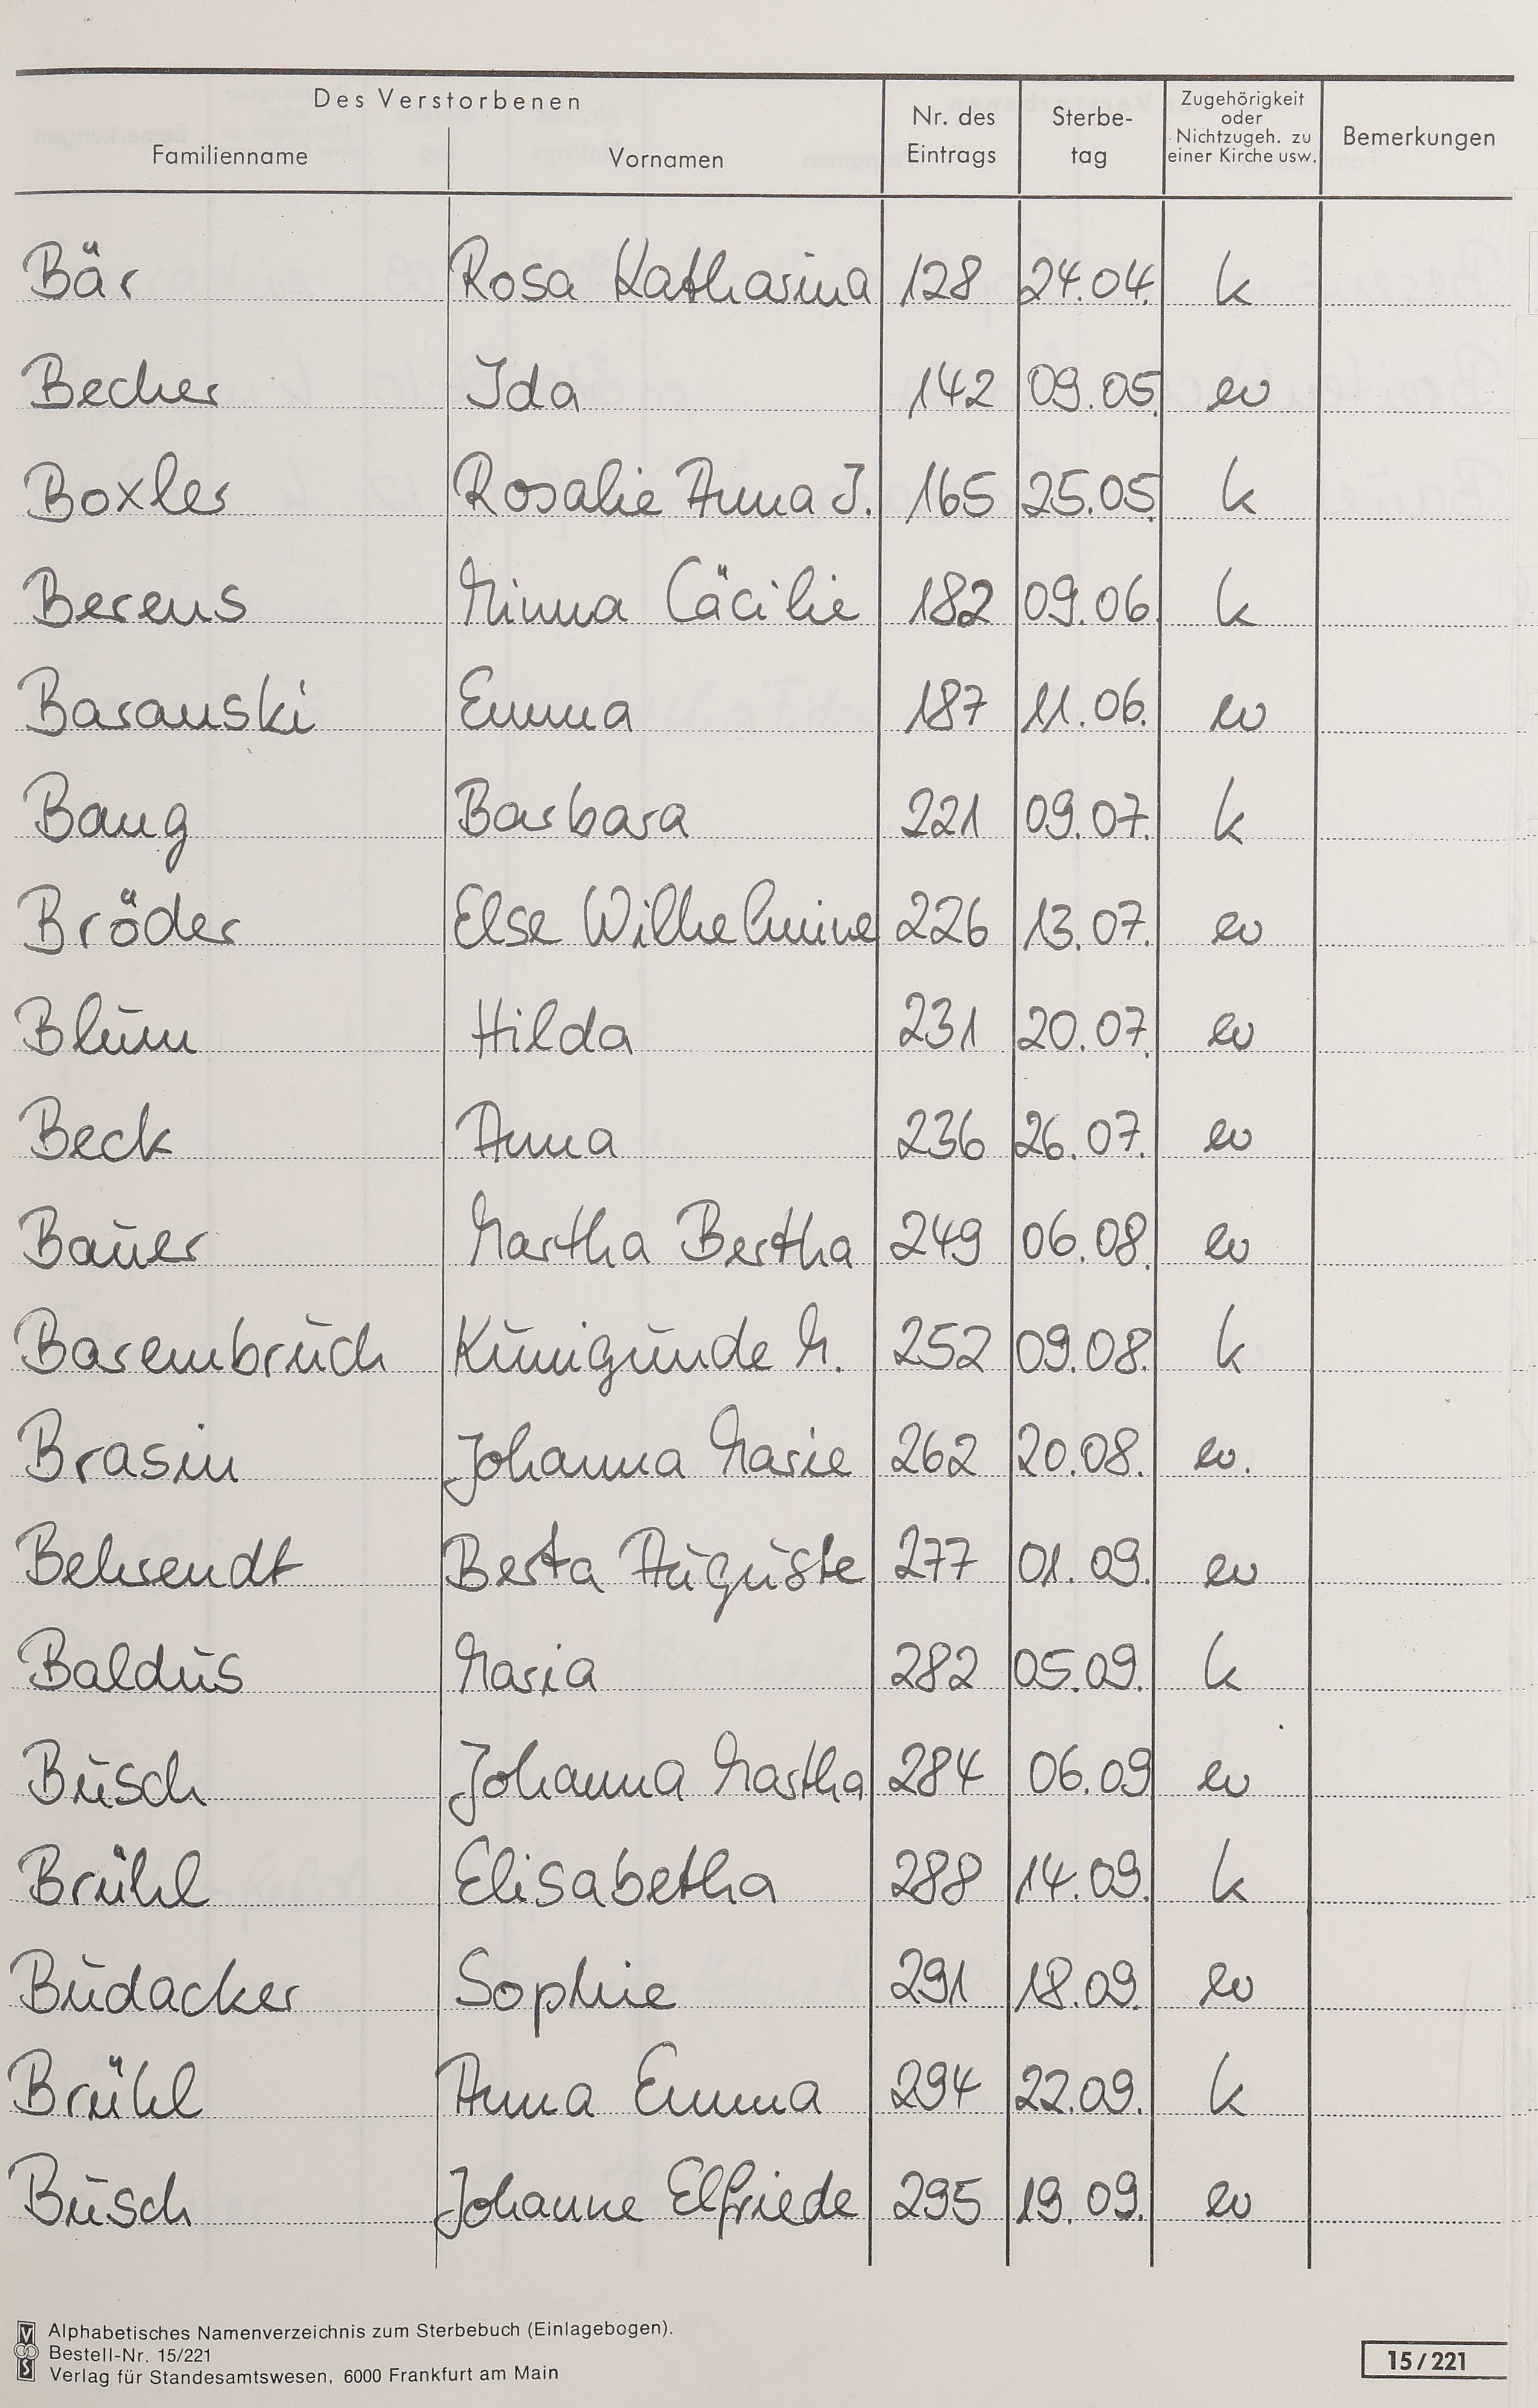 Des Verstorbenen
Familienname Vornamen Nr. des Eintrags Sterbe-tag Zugehörigkeit oder Nichtzugeh. zu einer Kirche usw. Bemerkungen
Bär Rosa Katharina 128 24.04. k
Becher Ida 142 09.05. ev
Boxler Rosalie Anna J. 165 25.05. k
Berens Minna Cäcilie 182 09.06. k
Baranski Emma 187 11.06. ev
Bang Barbara 221 09.07. k
Bröder Else Wilhelmine 226 13.07. ev
Blum Hilda 231 20.07. ev
Beck Anna 236 26.07. ev
Bauer Martha Bertha 249 06.08. ev
Barembruch Kunigunde M. 252 09.08. k
Brasin Johanna Marie 262 20.08. ev.
Behrendt Berta Auguste 277 01.09. ev
Baldus Maria 282 05.09. k
Busch Johanna Martha 284 06.09 ev
Brühl Elisabetha 288 14.09. k
Budacker Sophie 291 18.09. ev
Brühl Anna Emma 294 22.09. k
Busch Johanne Elfriede 295 19.09. ev
Alphabetisches Namenverzeichnis zum Sterbebuch (Einlagebogen).
Bestell-Nr. 15/221
Verlag für Standesamtswesen, 6000 Frankfurt am Main
15/221